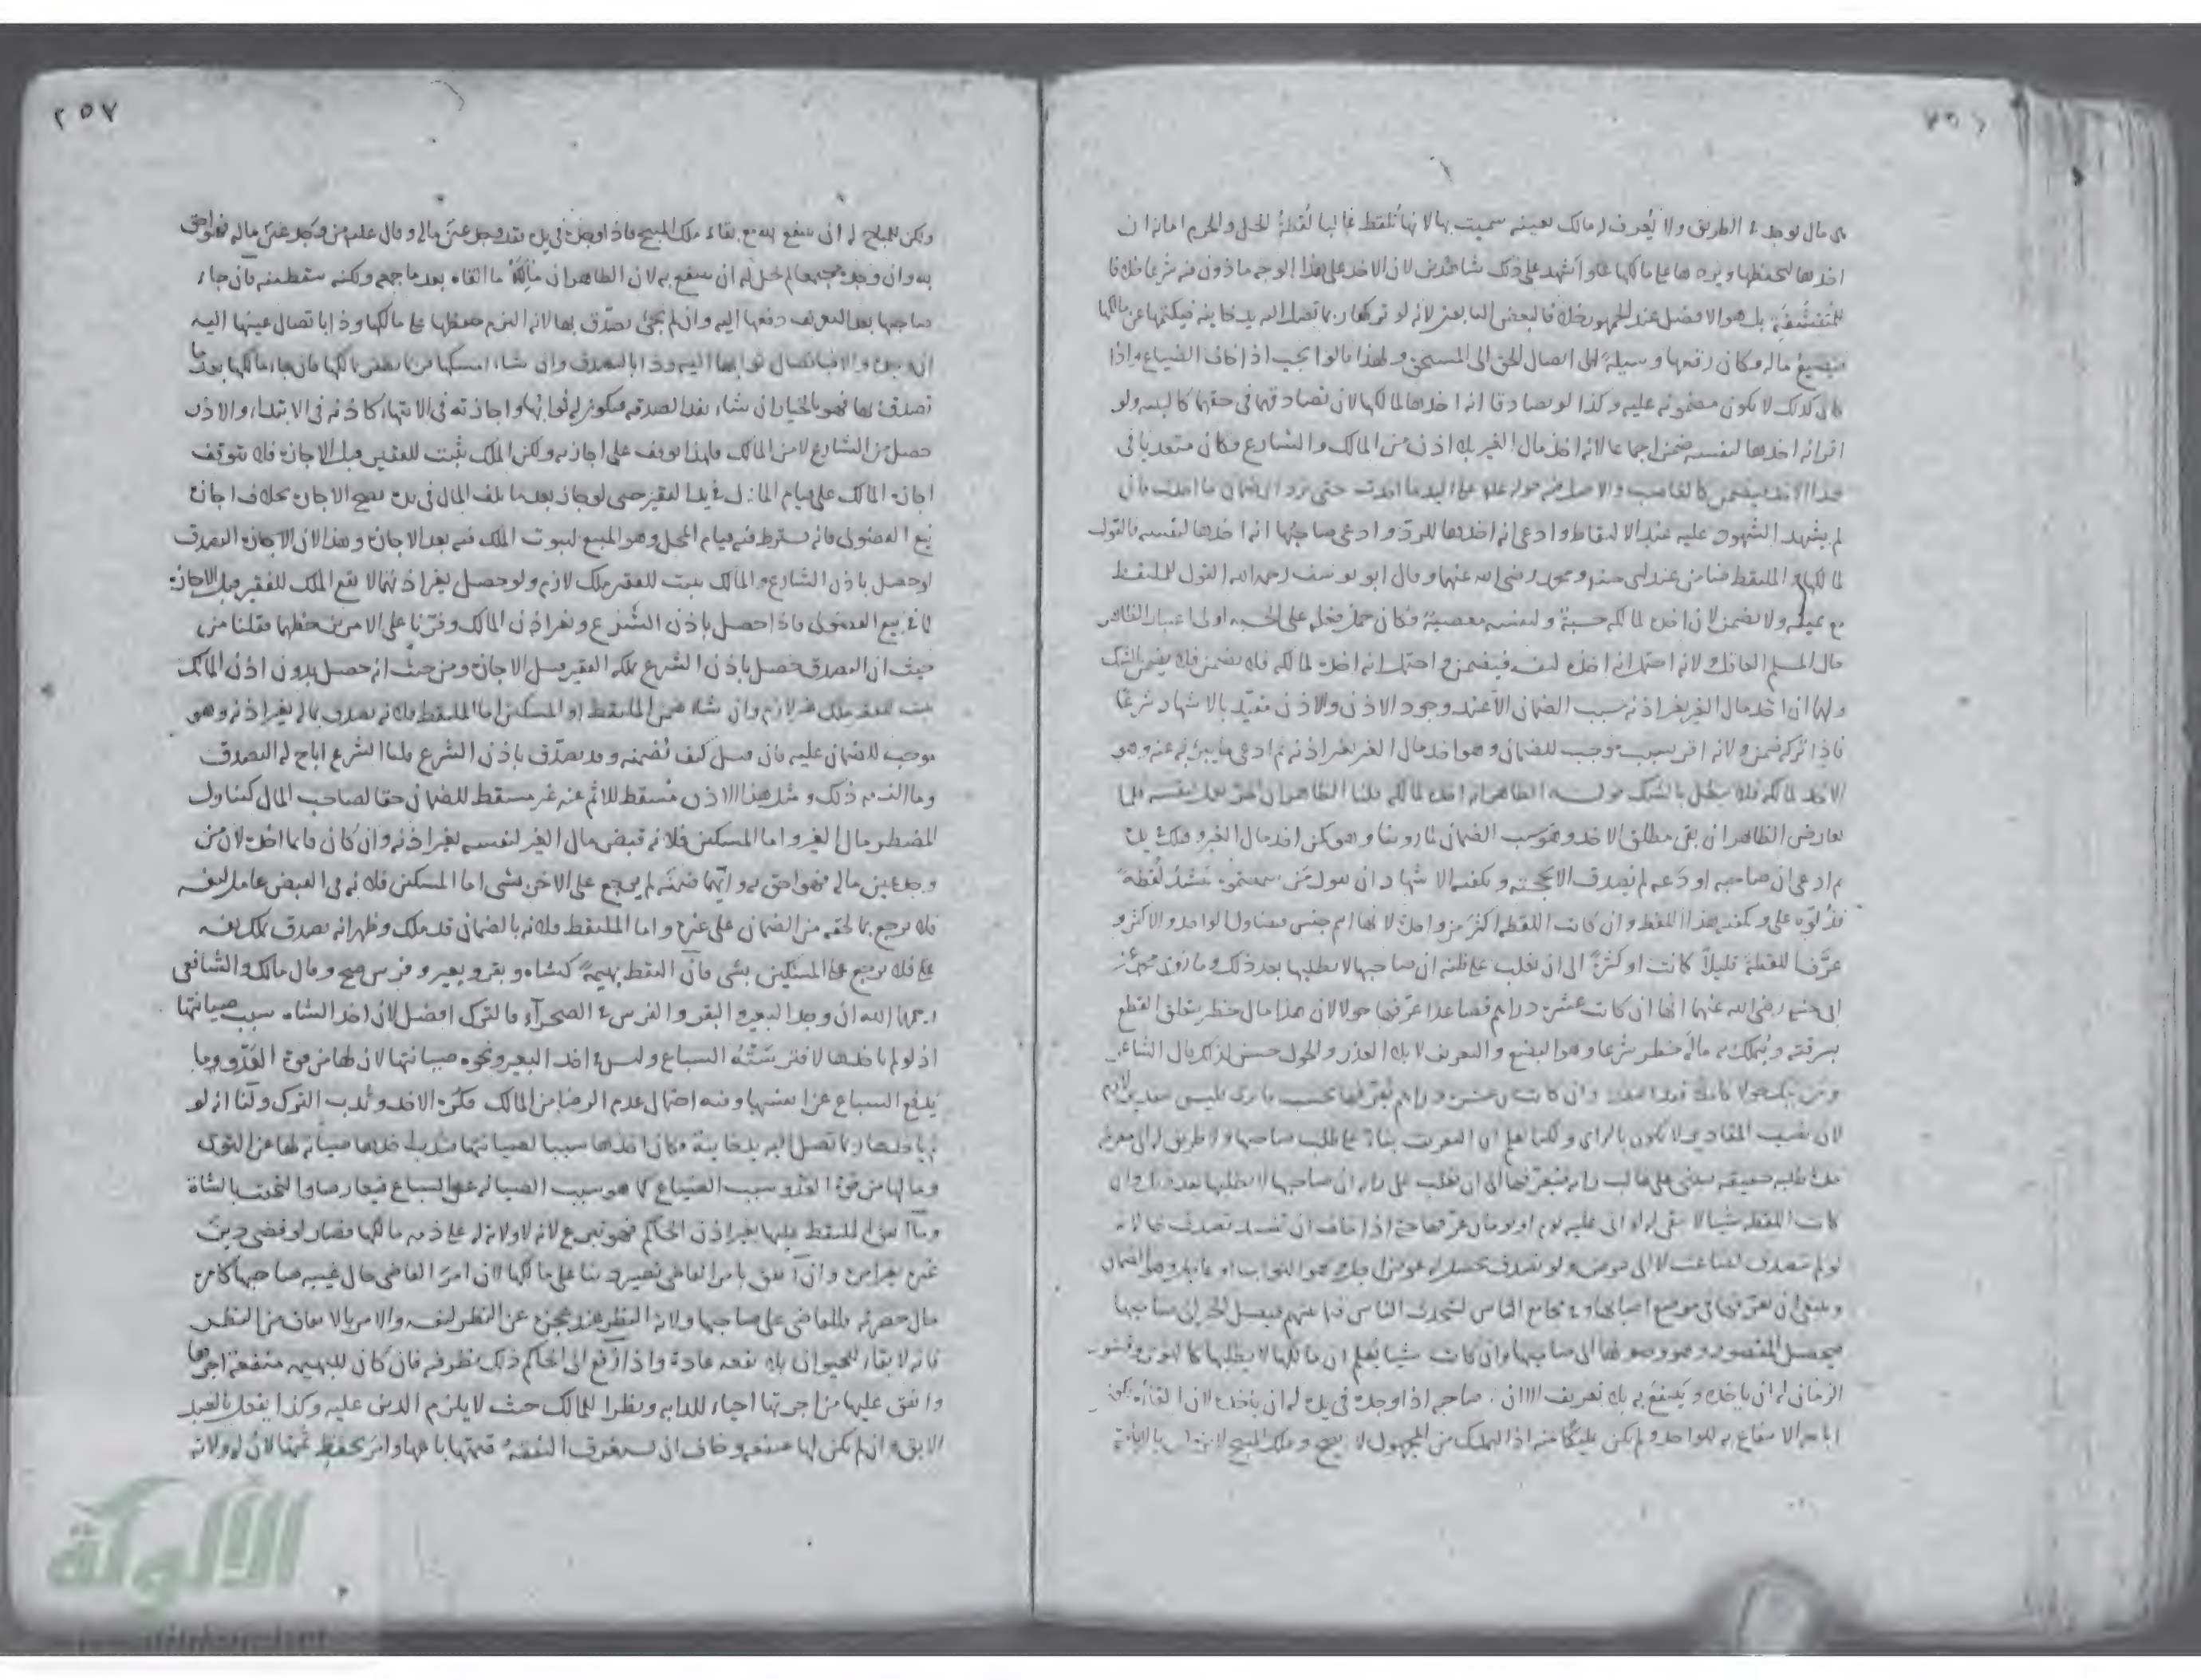 ٢٥٦
مال يوجد في الطريق ولا يُعرف له مالك بعينه سميت بها لانها تُلقط غالبا لُقطةُ الحل والحرم امانة ان
اخذها ليحفظها ويردها على مالكها واشهد على ذلك شاهدين لان الاخذ على هذا الوجه ماذون فيه شرعا خلافا
للمتقشفة بل هو الافضل عند الجمهور خلافا لبعض التابعين لانه لو تركها ربما تصل اليه يد خاينة فيكتمها عن مالكها
فيضيع ماله وكان رفعها وسيلة الى ايصال الحق الى المستحق ولهذا قالوا يجب اذا خاف الضياع واذا
كان كذلك لا يكون مضمونة عليه وكذا لو تصادقا انه اخذها لمالكها لان تصادقهما في حقهما كالبينه ولو
اقر انه اخذها لنفسه ضمن اجماعا لانه اخذ مال الغير بلا اذن من المالك والشارع فكان متعديا في
هذا الاخذ فيضمن كالغاصب والاصل فيه قوله على اليد ما اخذت حتى ترد فان
لم يشهد الشهود عليه عند الالتقاط وادعى انه اخذها للردّ وادعى صاحبُها انه اخذها لنفسه فالقول
لمالكها والملتقط ضامن عند ابى حنيفة ومحمد رضى الله عنهما وقال ابو يوسف رحمه الله القول للملتقط
مع يمينه ولا يضمن لان اخذه لمالكه حسبةٌ ولنفسه معصيةٌ فكان حمل فعله على الحسبه اولى اعتبارا لظاهر
حال المسلم العاقل لانه احتمل انه اخذه لنفسه فيضمن واحتمل انه اخذه لمالكه فلا يضمن فلا يضمن بالشك
ولهما ان اخذ مال الغير بغير اذنه سبب الضمان الا عند وجود الاذن والاذن مقيّد بالاشهاد شرعًا
فاذا تركه ضمن ولانه اقر بسبب موجب للضمان وهو اخذ مال الغير بغير اذنه ثم ادعى ما يبرئه عنه وهو
الاخذ لمالكه فلا يبطل بالشك قوله الظاهر انه اخذه لمالكه قلنا الظاهر ان المرء يعمل لنفسه فلما
تعارض الظاهران بقى مطلق الاخذ وهو سبب الضمان لما روينا وهو كمن اخذ مال الغير وهلك في يده
ثم ادعى ان صاحبه اودَعه لم يُصدق الا بحجته ويكفيه الاشهاد ان يقول مَن سمعتموه ينشُد لُقطةً
فدُلّوه على ويكفيه هذا اللفظ وان كانت اللقطه اكثر من واحدة لانها اسم جنس فيتناول الواحد والاكثر و
عرَّف اللقطة قليلاً كانت او كثيرةً الى ان يغلب على ظنه ان صاحبها لا يطلبها بعد ذلك وما روى محمد عن
ابى حنيفة رضى الله عنهما انها ان كانت عشرة دراهم فصاعدا عرّفها حولا لان هذا مال خطر يتعلق القطع
بسرقته ويُتملك به ماله خطر شرعا وهو البضع والتعريف لابلاء العذر والحول حسن لذلك قال الشاعر
ومن يبك حولا كاملا فقد اعتذر وان كانت من عشرة دراهم يعرّفها بحسب ما يرى فليس بتقدير لازم
لان نصب المقادير لا يكون بالراى ولكنا نعلم ان التعريف بناءً على طلب صاحبها ولا طريق له الى معرفة
مدة طلبه حقيقه فيبنى على غالب رايه فيعرّفها الى ان يغلب على رايه ان صاحبها لا يطلبها بعد ذلك وان
كانت اللقطه شيا لا يبقى لو اتى عليه يوم او يومان عرّفها حتى اذا خاف ان تفسد تصدق بها لانه
لو لم يتصدق لضاعت لا الى عوض ولو تصدق تحصل له عوض وهو الثواب او
وينبغى ان يعرّفها فى موضع اصابها وفي مجامع الناس ليتحدث الناس فيما بينهم فيصل الخبر الى صاحبها
فيحصل المقصود وهو وصولها الى صاحبها وان كانت شيا يُعلم ان مالكها لا يطلبها كالنوى وقشور
الرمان له ان ياخذه ويَنتفع به بلا تعريف الا ان صاحبه اذا وجده فى يده له ان ياخذه لان القاءه يكون
اباحه الانتفاع به للواحد ولم يكن تمليكًا منه اذ التمليك من المجهول لا يصح وملك المبيح لا يزول بالاباحة
٢٥٧
ولكن للمباح له ان ينتفع به مع بقاء ملك المبيح فاذا وجده فى يده فقد وجد عينَ ماله وقال عليه من وجد عينَ ماله فهو احق
به وان وجده مجتمعا لم يحل له ان ينتفع به لان الظاهر ان مالكه ما القاه بعد ما جمعه ولكنه سقط منه فان جاء
صاحبها بعد التعريف دفعها اليه وان لم يجئ تصدّق بها لانه التزم حفظها على مالكها وذا بايصال عينها اليه
ان وجده والا فبايصال ثوابها اليه وذا بالتصدق وان شاء امسكها فان جاء مالكها بعد ما
تصدق بها فهو بالخيار ان شاء نفذ الصدقه فيكون له ثوابها واجازته فى الانتهاء كاذنه فى الابتداء والاذن
حصل من الشارع لا من المالك فلهذا توقف على اجازته ولكن الملك يثبت للفقير قبل الاجازة فلا يتوقف
اجازة المالك على قيام المال في يد الفقير حتى لو اجاز بعد ما تلف المال فى يده تصح الاجازة بخلاف اجازة
بيع الفضولى فانه يشترط فيه قيام المحل وهو المبيع لثبوت الملك فيه بعد الاجازة وهذا لان الاجازة التصدق
لو حصل باذن الشارع والمالك يثبت للفقير ملك لازم ولو حصل بغير اذنهما لا يقع الملك للفقير قبل الاجازة
كما في بيع الفضولى فاذا حصل باذن الشرع وبغير اذن المالك وفّرنا على الامرين حظهما فقلنا من
حيث ان التصدق حصل باذن الشرع ملكه الفقير قبل الاجازة ومن حيث انه حصل بدون اذن المالك
يثبت للفقير ملك غير لازم وان شاء ضمن الملتقط او المسكين اما الملتقط فلانه تصدق بماله بغير اذنه وهو
موجب للضمان عليه فان قيل كيف تُضمنه وقد تصدّق باذن الشرع قلنا الشرع اباح له التصدق
وما الزمه ذلك ومثل هذا الاذن مُسقط للاثم عنه غير مسقط للضمان حقا لصاحب المال كتناول
المضطر مال الغير واما المسكين فلانه قبض مال الغير لنفسه بغير اذنه وان كان قايما اخذه لان من
وجد عين ماله فهو احق به وايّهما ضمنَه لم يرجع على الاخر بشى اما المسكين فلانه فى القبض عامل لنفسه
فلا يرجع بما لحقه من الضمان على غيره واما الملتقط فلانه بالضمان قد ملك وظهر انه تصدق بملك نفسه
فلا يرجع على المسكين بشى فان التقط بهيمةً كشاه وبقر وبعير وفرس صح وقال مالك والشافعى
رحمهما الله ان وجد البعير والبقر والفرس في الصحرآء فالترك افضل لان اخذ الشاه سبب صيانتها
اذ لو لم ياخذها لافترسَتْهُ السباع وليس في اخذ البعير ونحوه صيانتها لان لها من قوة العَدْو وما
يَدفع السباع عن انفسها وفيه احتمال عدم الرضا من المالك فكُرِه الاخذ ونُدب الترك ولنا انه لو
لم ياخذها ربما تصل اليه يد خاينة فكان اخذها سببا لصيانتها
وما لها من قوة العَدْو سبب الضياع كما هو سبب الصيانه عن السباع فتعارضا والتحقت بالشاة
وما انفق الملتقط عليها بغير اذن الحاكم فهو تبرع لانه لا ولاية له على ذمه مالكها فصار كما لو قضى دين
غيره بغير امره وان انفق بامر القاضى يصير دينا على مالكها لان امر القاضى حال غيبه صاحبها كامره
حال حضرته وللقاضى على صاحبها ولاية النظر عند عجزه عن النظر لنفسه والامر بالانفاق من النظر
فانه لا بقاء للحيوان بلا نفقه عادة واذا رُفع الى الحاكم ذلك نظر فيه فان كان للبهيمه منفعة اجرها
وانفق عليها من اجرتها احياء للدابه ونظرا للمالك حيث لا يلزم الدين عليه وكذا يفعل بالعبد
الابق وان لم يكن لها منفعه وخاف ان يستغرق النفقهُ قيمتها باعها وامر بحفظ ثمنها لان له ولاية
الألوكة